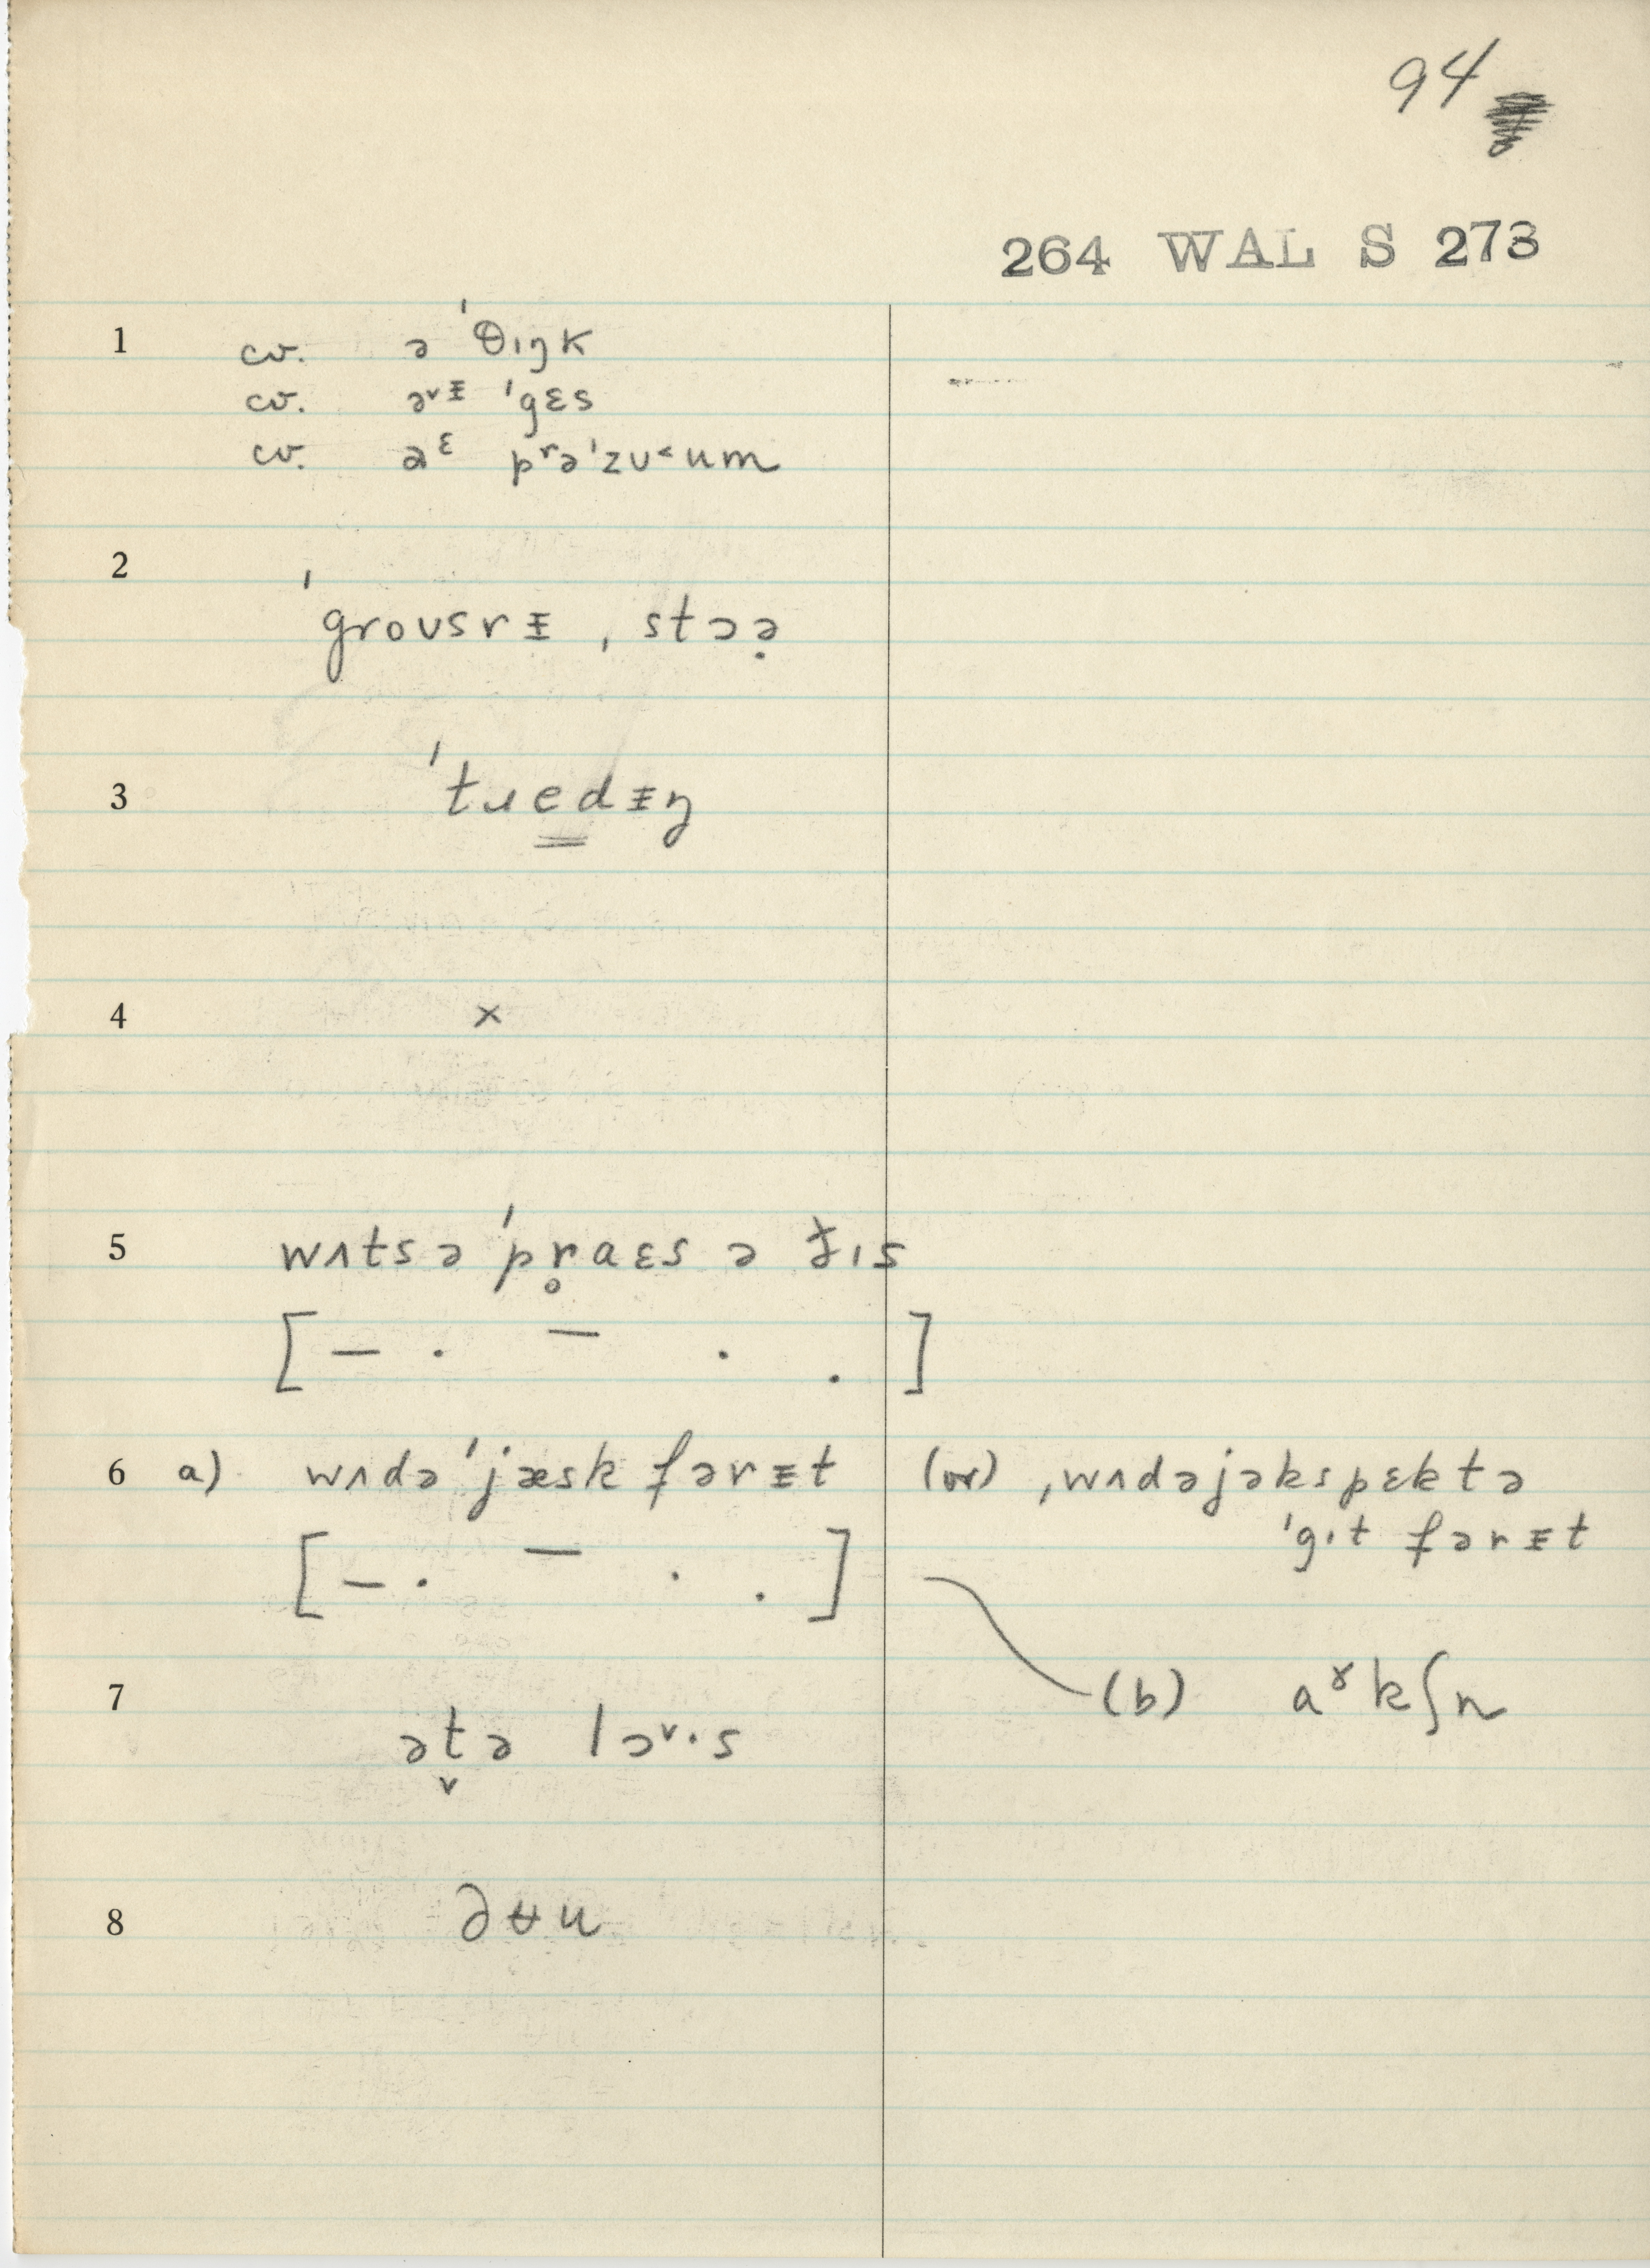 94
264 WAL S 273
1 cv. ə ˈθɪŋk
cv. əᵛᵻ ˈgɛs
cv. aᵋ pʳəˈzʊ˂um
2 ˈgroʊsrᵻ ˌstɔə̣
3 ˈtɹe̳dᵻŋ
4 ×
5 wʌtsə ˈpr̥aɛs ə ð̵ɪs
[ – · – · . ]
6 a) wʌdə ˈjæsk fərᵻt (or) ˌwʌdəjəkspɛktə
ˈgɪt fərᵻt
[ – · – · . ]
(b) aᵟkʃn
7 ət̬ə lɔᵛ·s
8 ∂ʉu